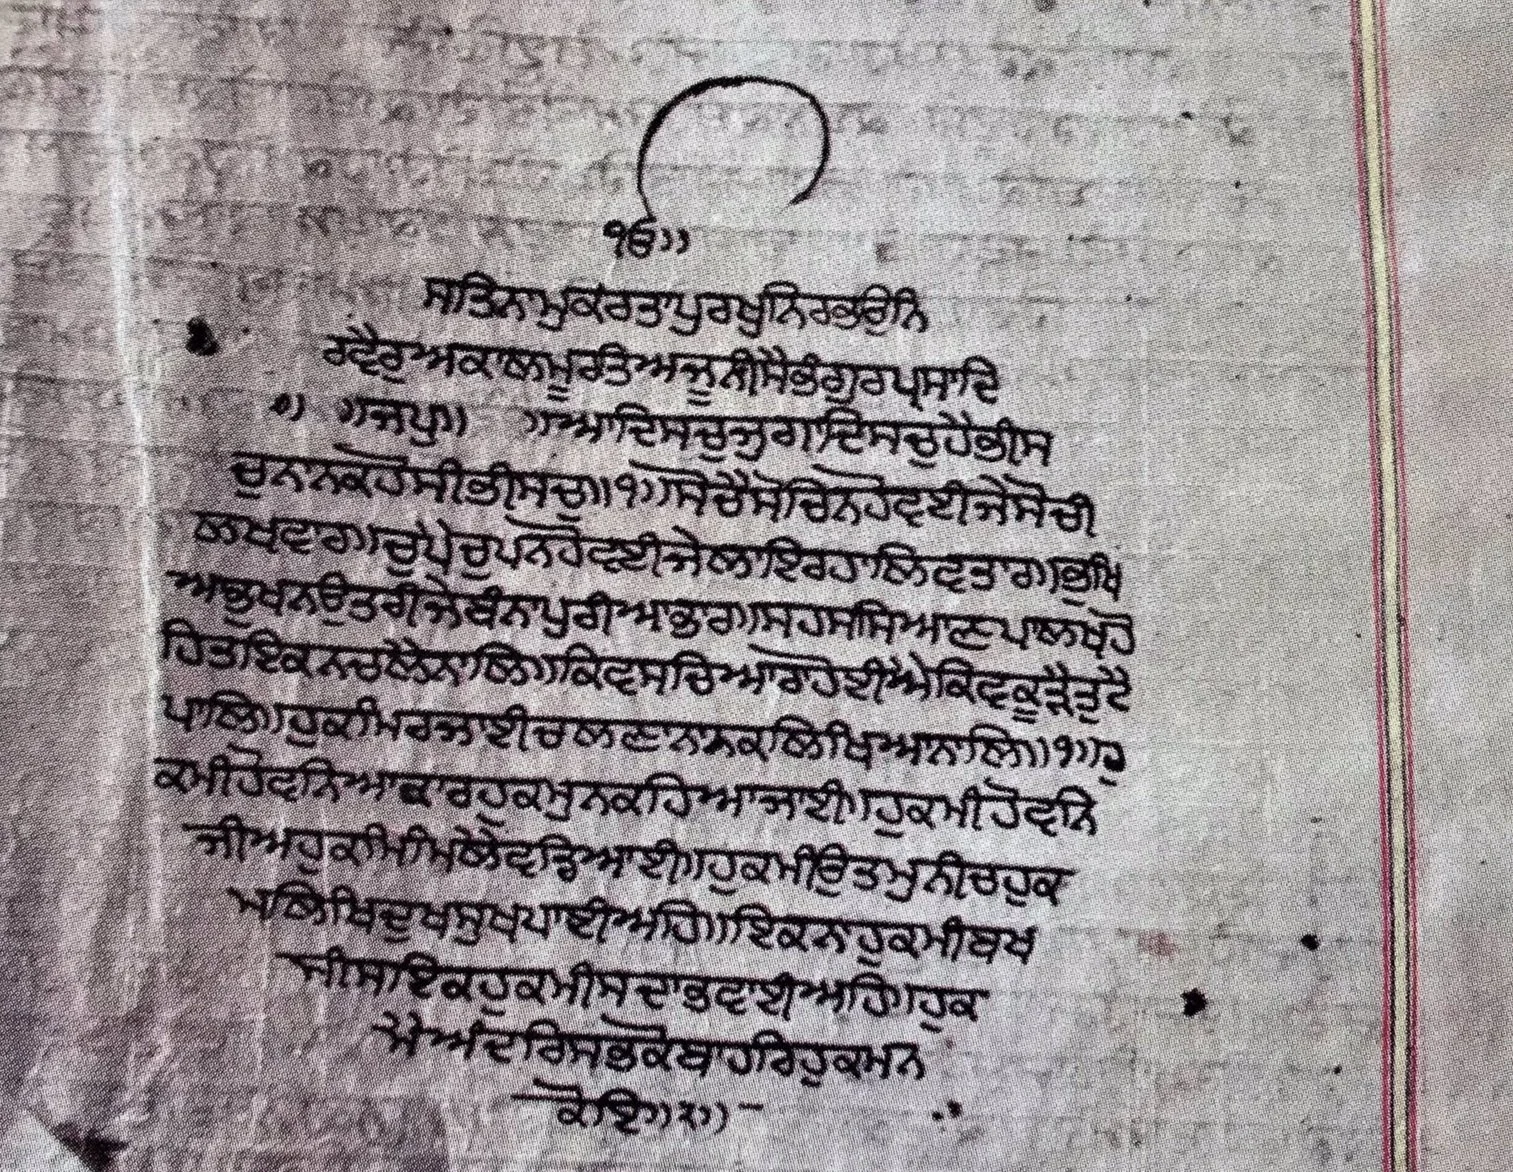 ੴ॥
ਸਤਿਨਾਮੁਕਰਤਾਪੁਰਖੁਨਿਰਭਉਨਿ
ਰਵੈਰੁਅਕਾਲਮੂਰਤਿਅਜੂਨੀਸੈਭੰਗੁਰਪ੍ਰਸਾਦਿ
॥ਜਪੁ॥ ॥ਆਦਿਸਚੁਜੁਗਾਦਿਸਚੁਹੈਭੀਸ
ਚੁਨਾਨਕਹੋਸੀਭੀਸਚੁ॥੧॥ਸੋਚੈਸੋਚਿਨਹੋਵਈਜੇਸੋਚੀ
ਲਖਵਾਰ॥ਚੁਪੈਚੁਪਨਹੋਵਈਜੇਲਾਇਰਹਾਲਿਵਤਾਰ॥ਭੁਖਿ
ਅਭੁਖਨਉਤਰੀਜੇਬੰਨਾਪੁਰੀਆਭਾਰ॥ਸਹਸਸਿਆਣਪਾਲਖਹੋ
ਹਿਤਇਕਨਚਲੈਨਾਲਿ॥ਕਿਵਸਚਿਆਰਾਹੋਈਐਕਿਵਕੂੜੈਤੁਟੈ
ਪਾਲਿ॥ਹੁਕਮਿਰਜਾਈਚਲਣਾਨਾਨਕਲਿਖਿਅਨਾਲਿ॥੧॥ਹੁ
ਕਮੀਹੋਵਨਿਆਕਾਰਹੁਕਮੁਨਕਹਿਆਜਾਈ॥ਹੁਕਮੀਹੋਵਨਿ
ਜੀਅਹੁਕਮਿਮਿਲੈਵਡਿਆਈ॥ਹੁਕਮੀਉਤਮੁਨੀਚਹੁਕ
ਮਲਿਖਿਦੁਖਸੁਖਪਾਈਅਹਿ॥ਇਕਨਾਹੁਕਮੀਬਖ
ਸੀਸਇਕਹੁਕਮੀਸਦਾਭਵਾਈਅਹਿ॥ਹੁਕ
ਮੈਅੰਦਰਿਸਭਕੋਬਾਹਰਿਹੁਕਮਨ
ਕੋਇ॥੨॥